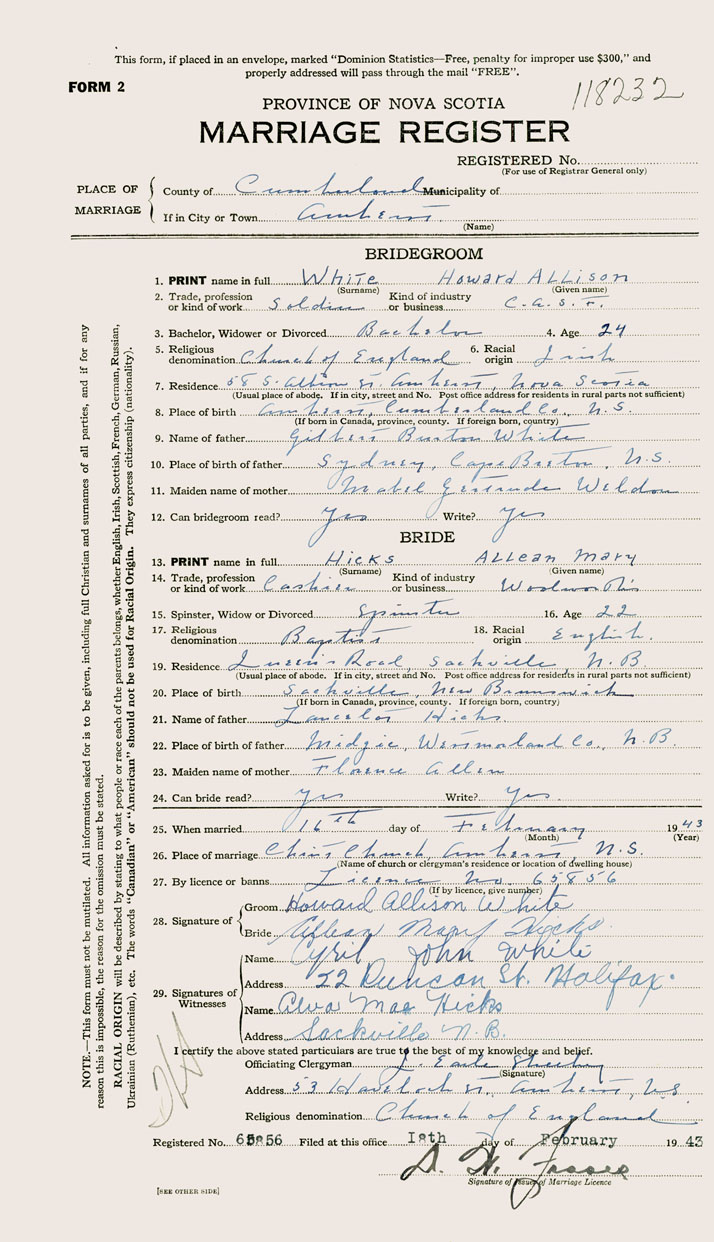 This form, if placed in an envelope, marked “Dominion Statistics—Free, penalty for improper use $300,” and
properly addressed will pass through the mail “FREE”.
FORM 2
118232
PROVINCE OF NOVA SCOTIA
MARRIAGE REGISTER
REGISTERED No.
(For use of Registrar General only)
PLACE OF MARRIAGE
County of Cumberland Municipality of
If in City or Town Amherst
(Name)
BRIDEGROOM
1. PRINT name in full White Howard Allison
(Surname) (Given name)
2. Trade, profession or kind of work Soldier Kind of industry or business C.A.S.F.
3. Bachelor, Widower or Divorced Bachelor 4. Age 24
5. Religious denomination Church of England 6. Racial origin Irish
7. Residence 58 S. Albion St. Amherst, Nova Scotia
(Usual place of abode. If in city, street and No. Post office address for residents in rural parts not sufficient)
8. Place of birth Amherst, Cumberland Co., N.S.
(If born in Canada, province, county. If foreign born, country)
9. Name of father Gilbert Burton White
10. Place of birth of father Sydney, Cape Breton, N.S.
11. Maiden name of mother Mabel Gertrude Weldon
12. Can bridegroom read? Yes Write? Yes
BRIDE
13. PRINT name in full Hicks Allean Mary
(Surname) (Given name)
14. Trade, profession or kind of work Cashier Kind of industry or business Woolworth's
15. Spinster, Widow or Divorced Spinster 16. Age 22
17. Religious denomination Baptist 18. Racial origin English.
19. Residence Queen's Road, Sackville, N.B.
(Usual place of abode. If in city, street and No. Post office address for residents in rural parts not sufficient)
20. Place of birth Sackville, New Brunswick
(If born in Canada, province, county. If foreign born, country)
21. Name of father Lancelot Hicks
22. Place of birth of father Midgic, Westmorland Co., N.B.
23. Maiden name of mother Florence Allen
24. Can bride read? Yes Write? Yes.
25. When married 16th day of February 1943
(Month) (Year)
26. Place of marriage Christ Church, Amherst, N.S.
(Name of church or clergyman's residence or location of dwelling house)
27. By licence or banns Licence No. 65856
(If by licence, give number)
28. Signature of
Groom Howard Allison White
Bride Allean Mary Hicks
29. Signatures of Witnesses
Name Cyril John White
Address 22 Duncan St. Halifax.
Name Alva Mae Hicks
Address Sackville N.B.
I certify the above stated particulars are true to the best of my knowledge and belief.
Officiating Clergyman J. Earle
(Signature)
Address 53 Havelock St, Amherst, N.S
Religious denomination Church of England
Registered No. 65856 Filed at this office 18th day of February 1943
D. H. Fraser
Signature of Issuer of Marriage Licence
[SEE OTHER SIDE]
NOTE.—This form must not be mutilated. All information asked for is to be given, including full Christian and surnames of all parties, and if for any
reason this is impossible, the reason for the omission must be stated.
RACIAL ORIGIN will be described by stating to what people or race each of the parents belongs, whether English, Irish, Scottish, French, German, Russian,
Ukrainian (Ruthenian), etc. The words “Canadian” or “American” should not be used for Racial Origin. They express citizenship (nationality).